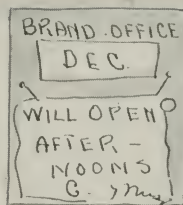 BRAND.OFFICE
DEC.
WILL OPEN
AFTER-
NOONS
G.